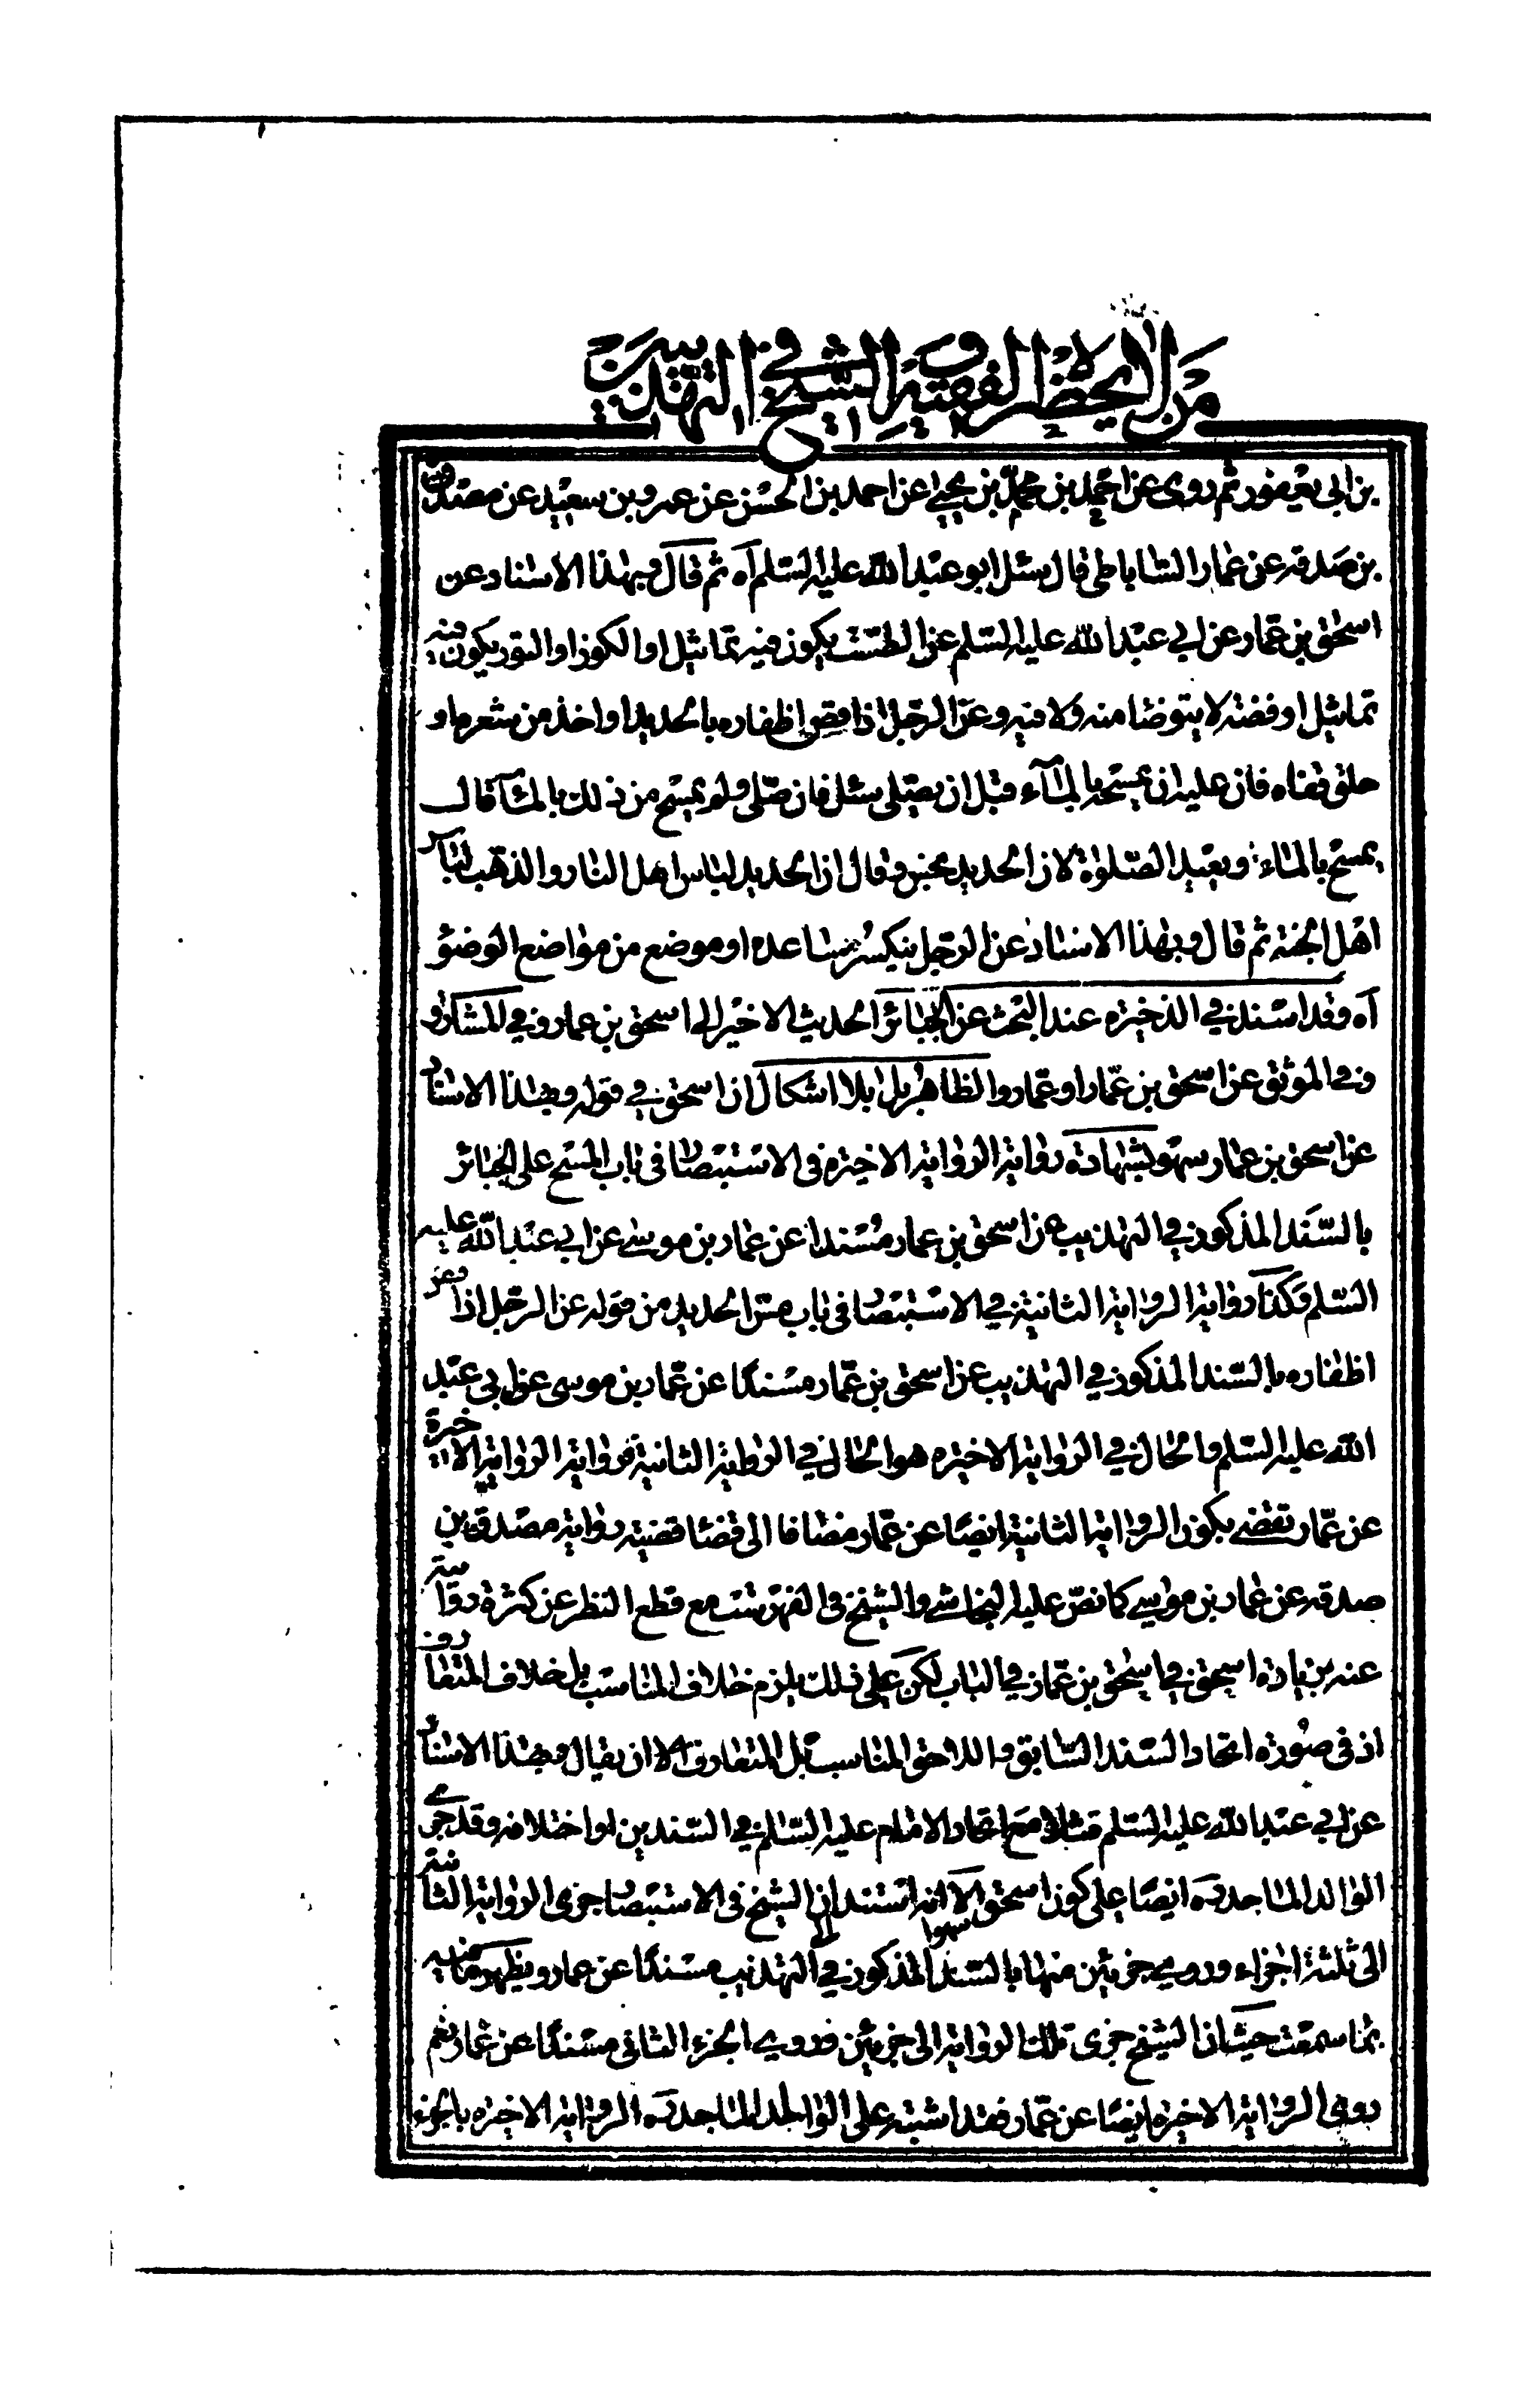 من لا يحضر الفقيه و الشيخ في التهذيبين
بن ابى يعفور ثم روى عن احمد بن محمد بن يحيى عن احمد بن الحسن عن عمرو بن سعيد عن مصدق
بن صدقه عن عمار الساباطى قال سئل ابو عبد الله عليه السلم آه ثم قال و بهذا الاسناد عن
اسحق بن عمار عن ابي عبد الله عليه السلم عن الطشت يكون فيه تماثيل او الكوز او التور يكون فيه
تماثيل او فضة لا يتوضا منه ولا فيه وعن الرجل اذا قص اظفاره بالحديد او اخذ من شعره او
حلق قفاه فان عليه ان يمسحه بالمآء قبل ان يصلى سئل فان صلى ولم يمسح من ذلك بالماء قال
يمسح بالماء و يعيد الصلوة لان الحديد نجس وقال ان الحديد لباس اهل النار والذهب لباس
اهل الجنة ثم قال وبهذا الاسناد عن الرجل ينكسر ساعده او موضع من مواضع الوضؤ
آه وقد اسند في الذخيره عند البحث عن الجبائر الحديث الاخير الى اسحق بن عمار وفي المشارق
وفي الموثق عن اسحق بن عمار او عمار والظاهر بل بلا اشكال ان اسحق في قوله وبهذا الاسناد
عن اسحق بن عمار سهو بشهادة رواية الرواية الاخيره فى الاستبصار فى باب المسح على الجبائر
بالسند المذكور في التهذيب عن اسحق بن عمار مسندا عن عمار بن موسى عن ابي عبد الله عليه
السلم وكذا رواية الرواية الثانية في الاستبصار فى باب مس الحديد من قوله عن الرجل اذا قص
اظفاره بالسند المذكور في التهذيب عن اسحق بن عمار مسندا عن عمار بن موسى عن ابى عبد
الله عليه السلم والحال في الرواية الاخيره هو الحال في الرواية الثانية فرواية الرواية الاخيرة
عن عمار تقضى بكون الرواية الثانية ايضا عن عمار مضافا الى قضا قضية رواية مصدق بن
صدقه عن عمار بن موسى كما نص عليه النجاشي والشيخ فى الفهرست مع قطع النظر عن كثرة روايته
عنه بزيادة اسحق في اسحق بن عمار في الباب لكن على ذلك يلزم خلاف المناسب بل خلاف المتعارف
اذ فى صورة اتحاد السند السابق و اللاحق المناسب بل المتعارف الا ان يقال وبهذا الاسناد
عن ابي عبد الله عليه السلم مثلا مع اتحاد الامام عليه السلم في السندين او اختلافه وقد جرى
الوالد الماجد ره ايضا على كون اسحق سهوا الا انه استند الى ان الشيخ فى الاستبصار جزى الرواية الثانية
الى ثلثة اجزاء وروى جزئين منها بالسند المذكور في التهذيب مسندا عن عمار ويظهر ما فيه
بما سمعت حيث ان الشيخ جزى تلك الرواية الى جزئين فروى الجزء الثانى مسندا عن عمار نعم
روى الرواية الاخيره ايضا عن عمار فقد اشتبه على الوالد الماجد ره الرواية الاخيره بالجزء